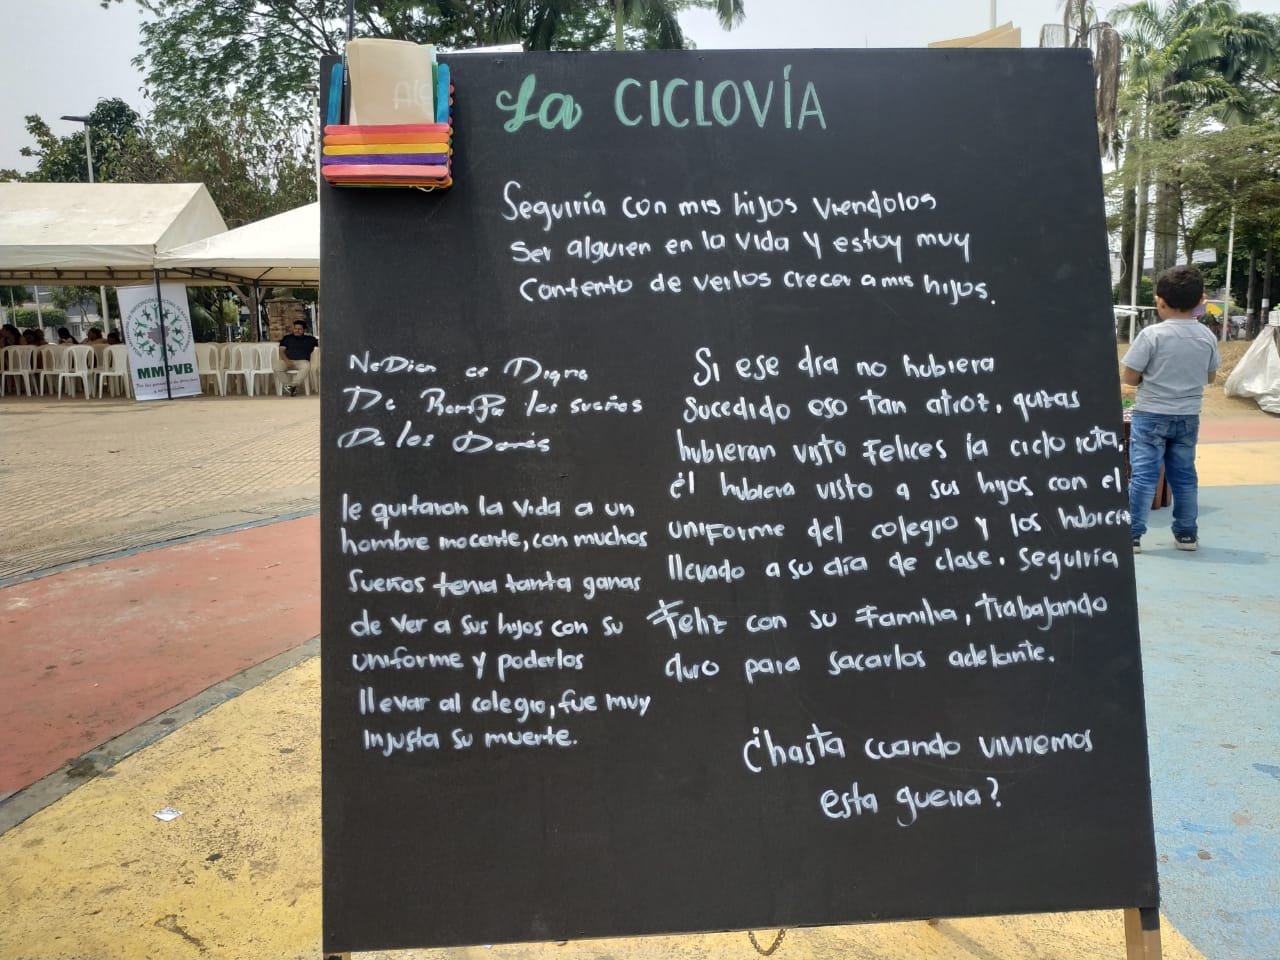 La CICLOVÍA
Seguiría con mis hijos viendolos
Ser alguien en la vida y estoy muy
Contento de verlos crecer a mis hijos.
NaDien es Digno
De RomPa los sueños
De los Demás
le quitaron la vida a un
hombre inocente, con muchos
sueños tenia tanta ganas
de ver a sus hijos con su
uniforme y poderlos
llevar al colegio, fue muy
injusta su muerte.
Si ese día no hubiera
sucedido eso tan atroz, quizas
hubieran visto Felices la ciclo ruta,
él hubiera visto a sus hijos con el
uniForme del colegio y los hubiera
llevado a su día de clase. Seguiría
Feliz con su Familia, Trabajando
duro para sacarlos adelante.
¿hasta cuando viviremos
esta guerra?
MMPVB